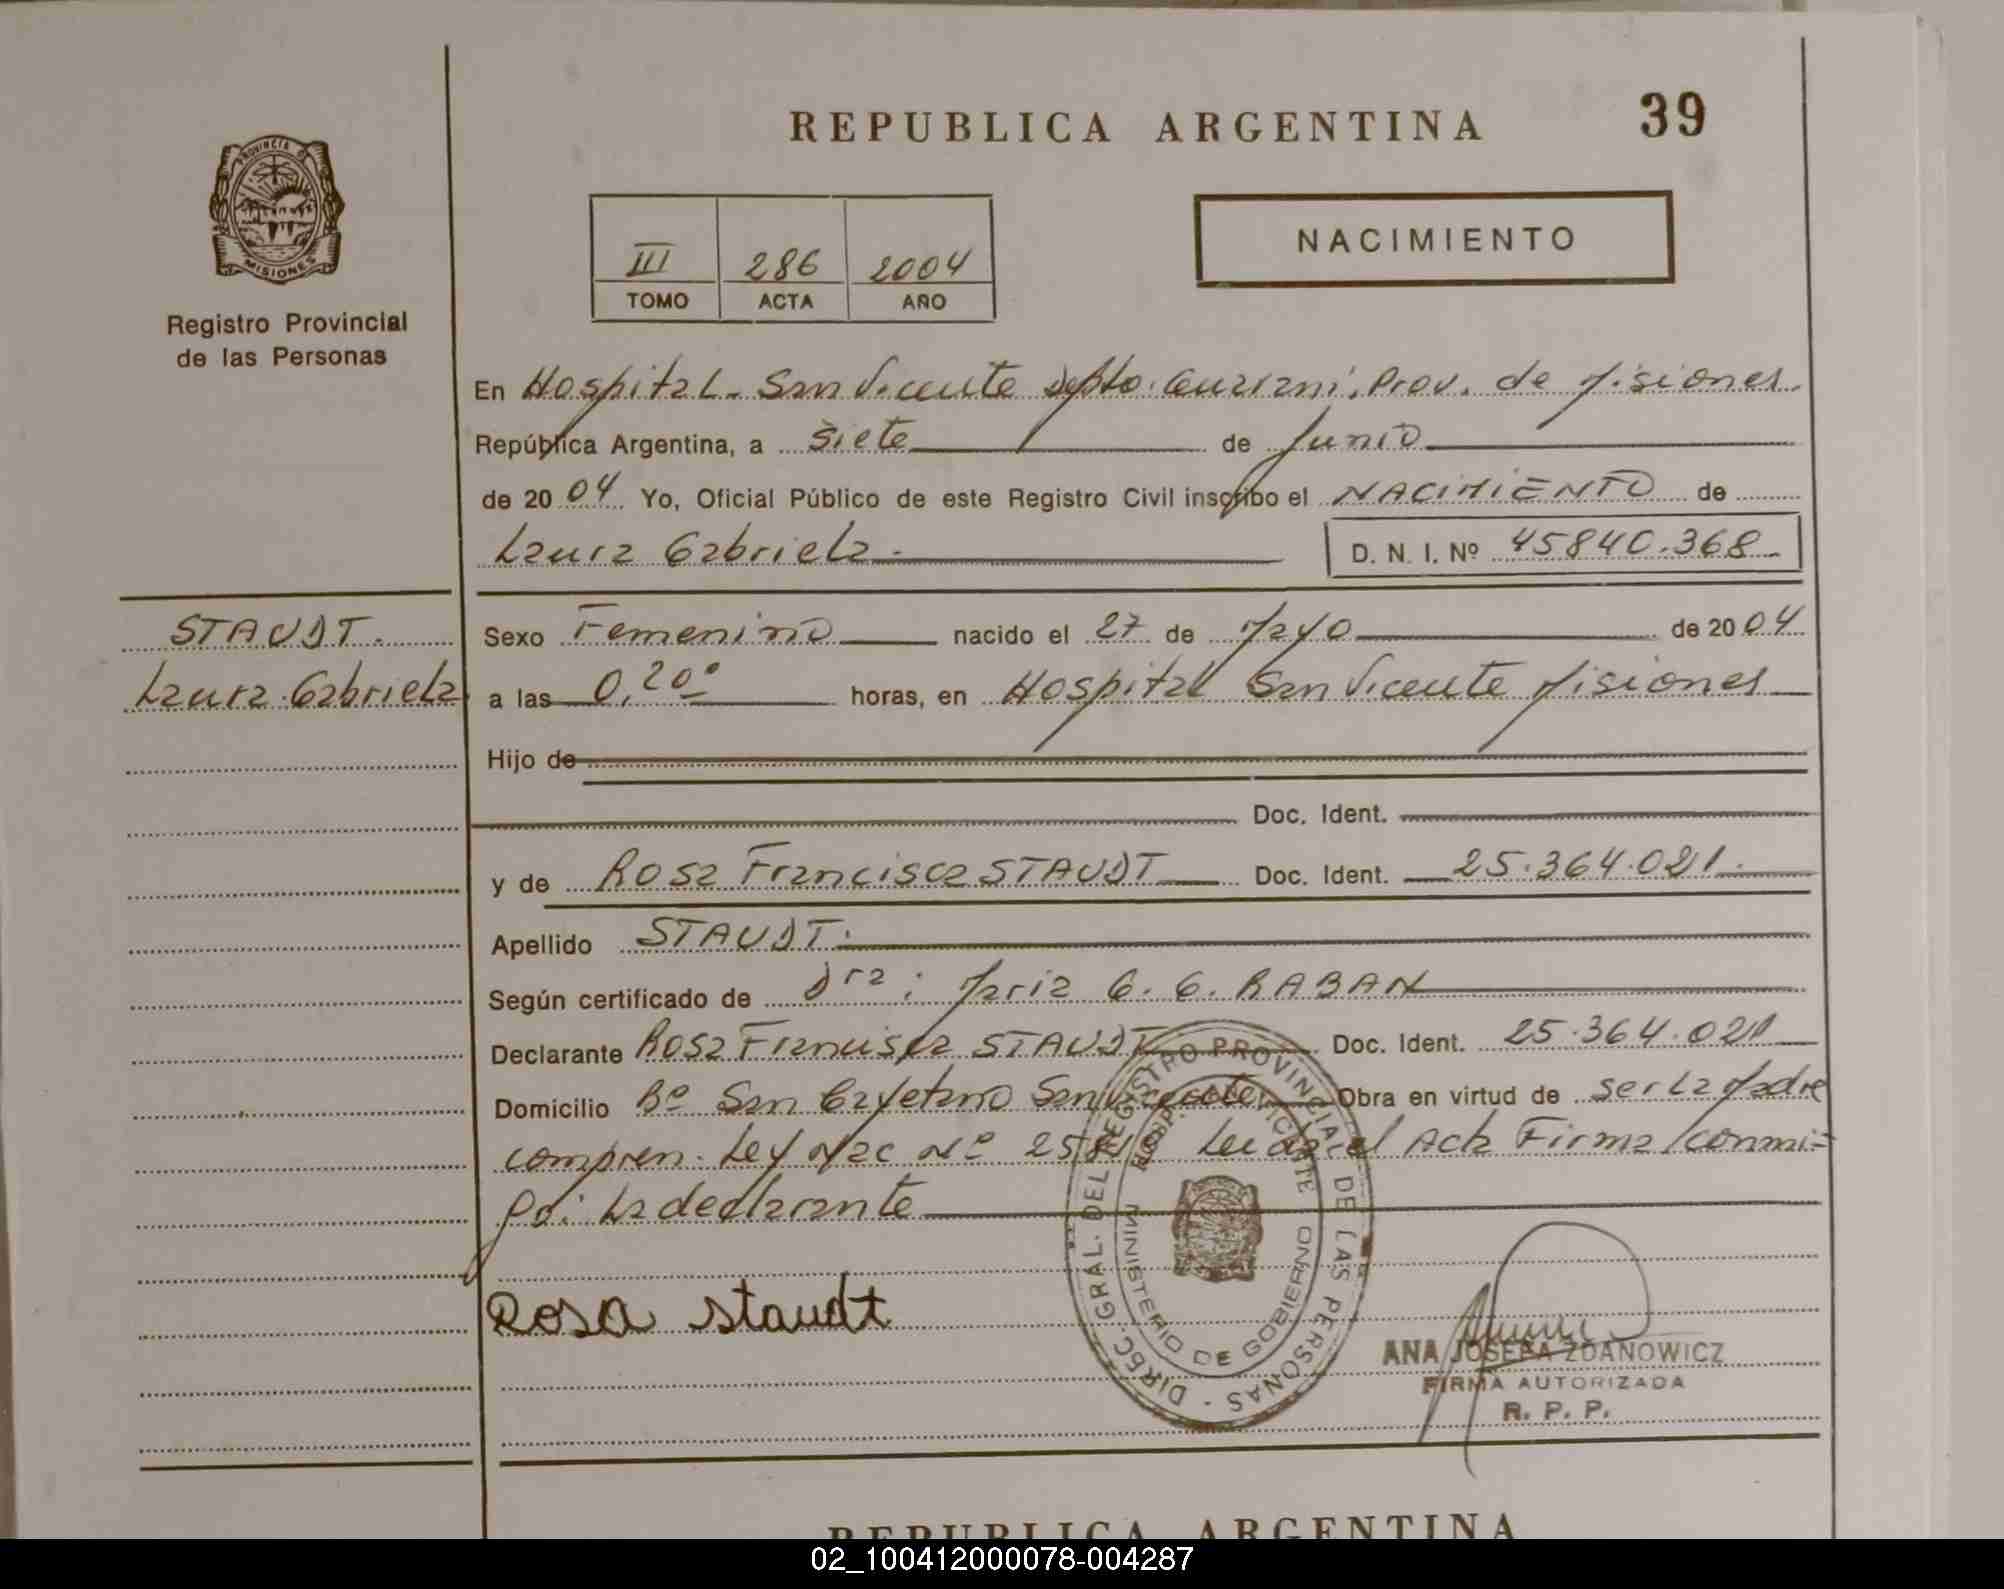 REPUBLICA ARGENTINA
39
PROVINCIA DE
MISIONES
Registro Provincial
de las Personas
III 286 2004
TOMO ACTA AÑO
NACIMIENTO
En Hospital - San Vicente Depto. Guarani, Prov. de Misiones.
República Argentina, a Siete de Junio
de 2004 Yo, Oficial Público de este Registro Civil inscribo el NACIMIENTO de
Laura Gabriela.
D. N. I. Nº 45840.368
STAUDT.
Laura Gabriela
Sexo Femenino nacido el 27 de Mayo de 2004
a las 0,20º horas, en Hospital San Vicente Misiones
Hijo de
Doc. Ident.
y de Rosa Francisca STAUDT Doc. Ident. 25.364.021.
Apellido STAUDT.
Según certificado de Dra: Maria G. G. RABAN
Declarante Rosa Francisca STAUDT Doc. Ident. 25.364.021
Domicilio Bº San Cayetano San Vicente, Obra en virtud de ser la Madre
compren. Ley Nac Nº Leida el Acta Firma conmi=
go: La declarante
Rosa Staudt
DIREC. GRAL. DEL REGISTRO PROVINCIAL DE LAS PERSONAS
MINISTERIO DE GOBIERNO
ANA JOSEFA ZDANOWICZ
FIRMA AUTORIZADA
R. P. P.
REPUBLICA ARGENTINA
02_100412000078-004287